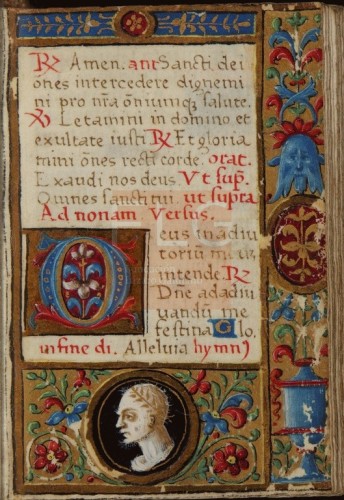 R Amen. ant Sancti dei
oñes intercedere dignemi
ni pro nr̃a oñiumq; salute.
V Letamini in domino et
exultate iusti R Et gloria
mini oñes recti corde. orat.
Exaudi nos deus. Vt sup̃.
Omnes sancti tui. ut supra
Ad nonam Versus.
Deus in adiu
torium meũ
intende. R
Dñe ad adiu
uandũ me
festina Glo.
in fine di. Alleluia hymn